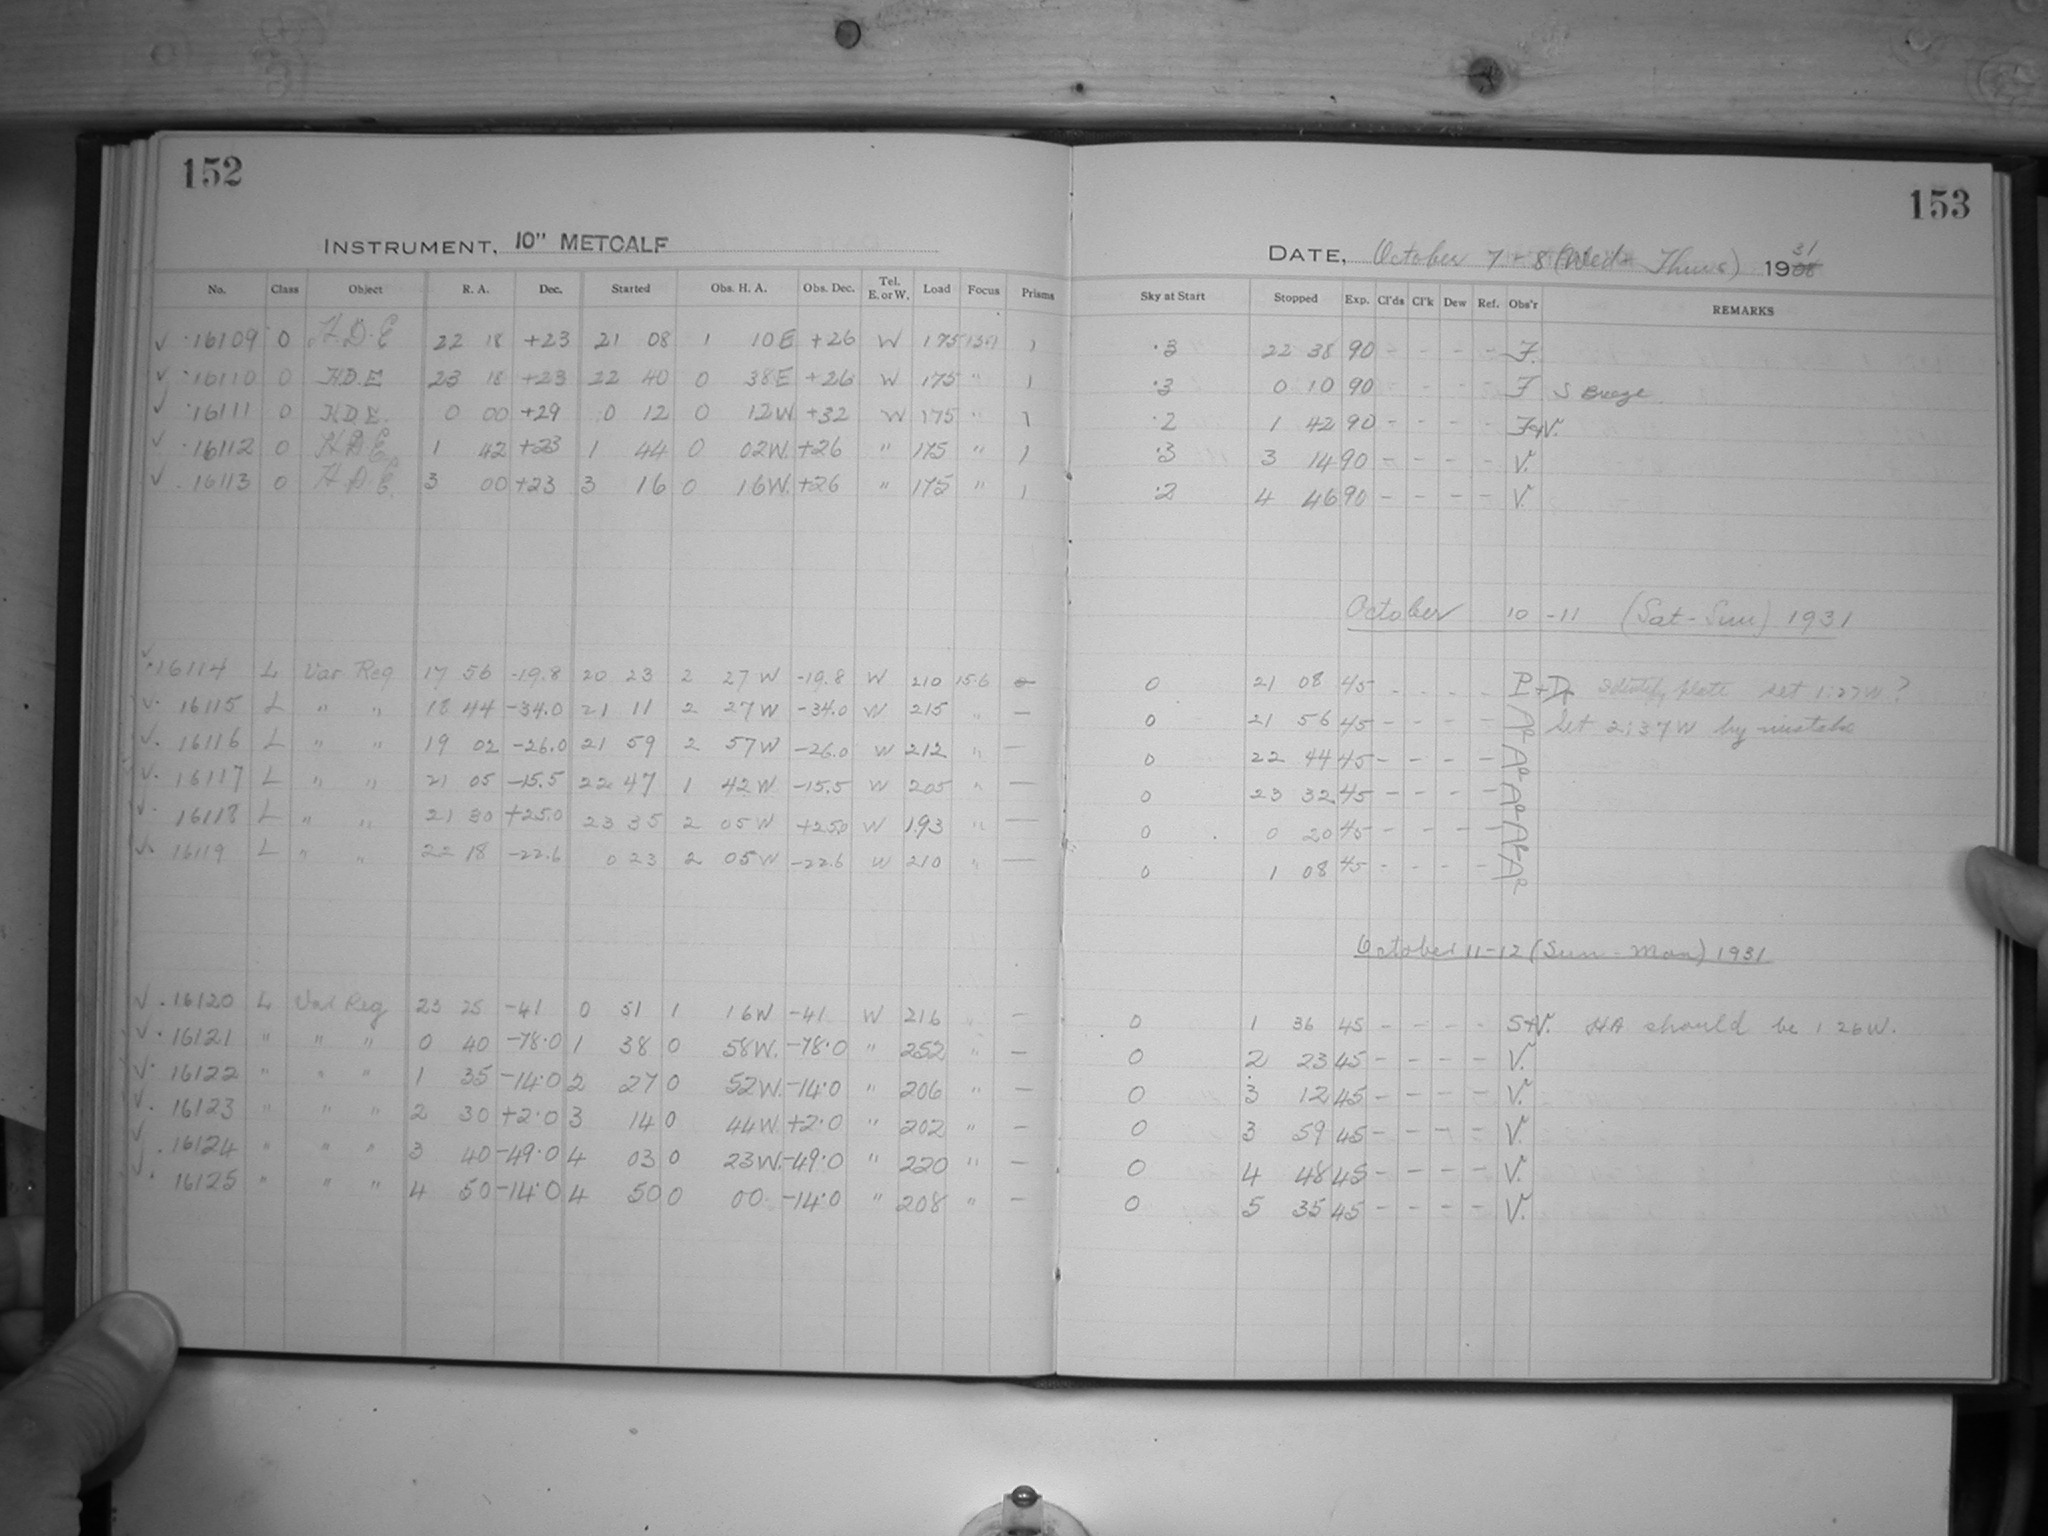 152
INSTRUMENT, 10" METCALF
No. Class Object R. A. Dec. Started Obs. H. A. Obs. Dec. Tel. E. or W. Load Focus Prisms
✓ ·16109 0 H.D.E 22 18 +23 21 08 1 10E +26 W 175 1
✓ ·16110 0 H.D.E 23 18 +23 22 40 0 38E +26 W 175 " 1
✓ ·16111 0 H.D.E. 0 00 +29 0 12 0 12W +32 W 175 " 1
✓ ·16112 0 H.D.E. 1 42 +23 1 44 0 02W. +26 " 175 " 1
✓ ·16113 0 H.D.E. 3 00 +23 3 16 0 16W. +26 " 175 " 1
✓·16114 L Var Reg 17 56 -19.8 20 23 2 27W -19.8 W 210 15.6
✓· 16115 L " " 18 44 -34.0 21 11 2 27W -34.0 W 215 " —
✓· 16116 L " " 19 02 -26.0 21 59 2 57W -26.0 W 212 " —
✓· 16117 L " " 21 05 -15.5 22 47 1 42W -15.5 W 205 " —
✓· 16118 L " " 21 30 +25.0 23 35 2 05W +25.0 W 193 " —
✓· 16119 L " " 22 18 -22.6 0 23 2 05W -22.6 W 210 " —
✓ ·16120 L Var Reg 23 25 -41 0 51 1 16W -41 W 216 —
✓ ·16121 " " " 0 40 -78.0 1 38 0 58W. -78.0 " 252 " —
✓· 16122 " " " 1 35 -14.0 2 27 0 52W. -14.0 " 206 " —
✓· 16123 " " " 2 30 +2.0 3 14 0 44W. +2.0 " 202 " —
✓ ·16124 " " " 3 40 -49.0 4 03 0 23W. -49.0 " 220 " —
✓· 16125 " " " 4 50 -14.0 4 50 0 00 -14.0 " 208 " —
153
DATE, October 7 + 8 (Wed - Thurs) 1931
Sky at Start Stopped Exp. Cl'ds Cl'k Dew Ref. Obs'r REMARKS
·3 22 38 90 - - - - F.
·3 0 10 90 - - - - F S Breeze.
·2 1 42 90 - - - - F+V.
·3 3 14 90 - - - - V.
·2 4 46 90 - - - - V.
October 10 - 11 (Sat - Sun) 1931
0 21 08 45 - - - - Identify plate Set 1:27W?
0 21 56 45 - - - - AR Set 2:37W by mistake
0 22 44 45 - - - - AR
0 23 32 45 - - - - AR
0 0 20 45 - - - - AR
0 1 08 45 - - - - AR
October 11-12 (Sun - Mon) 1931
0 1 36 45 - - - - S+V. HA should be 1 26W.
0 2 23 45 - - - - V.
0 3 12 45 - - - - V.
0 3 59 45 - - - - V.
0 4 48 45 - - - - V.
0 5 35 45 - - - - V.